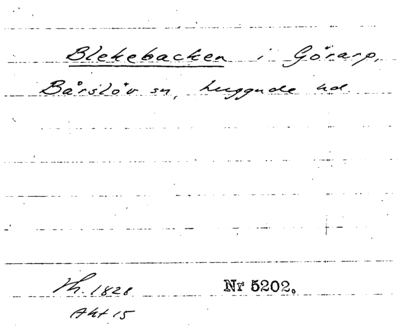 Blekebacken i Görarp,
Bårslöv sn, Luggude hd
Th. 1828
Nr 5202.
Akt 15